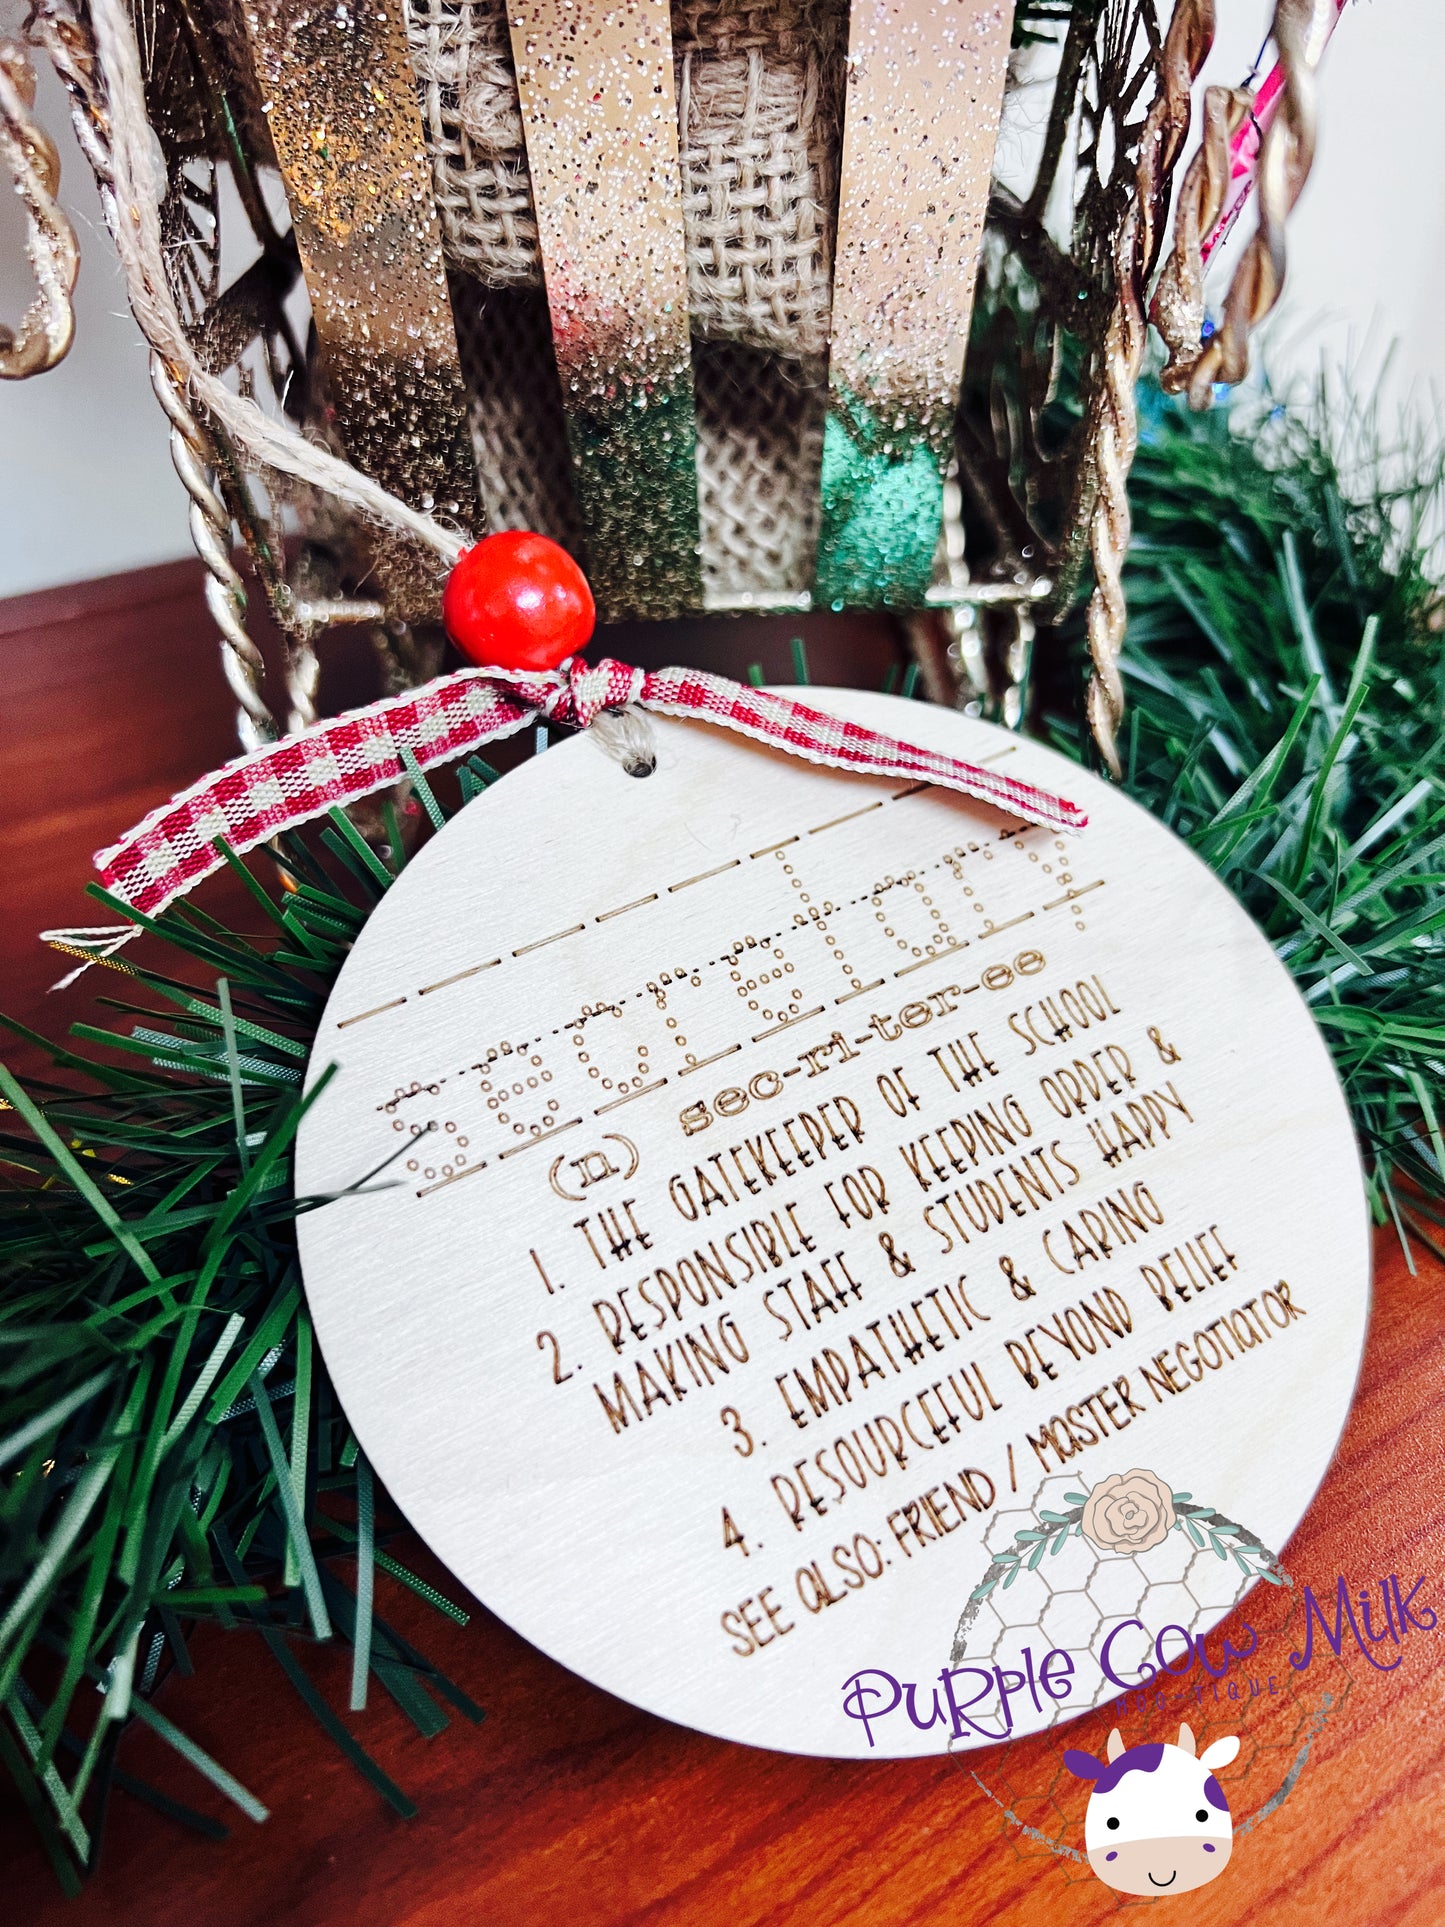 secretary
(n) sec-ri-ter-ee
1. THE GATEKEEPER OF THE SCHOOL
2. RESPONSIBLE FOR KEEPING ORDER &
MAKING STAFF & STUDENTS HAPPY
3. EMPATHETIC & CARING
4. RESOURCEFUL BEYOND BELIEF
SEE ALSO: FRIEND / MASTER NEGOTIATOR
PURPLE COW MILK
MOO-TIQUE